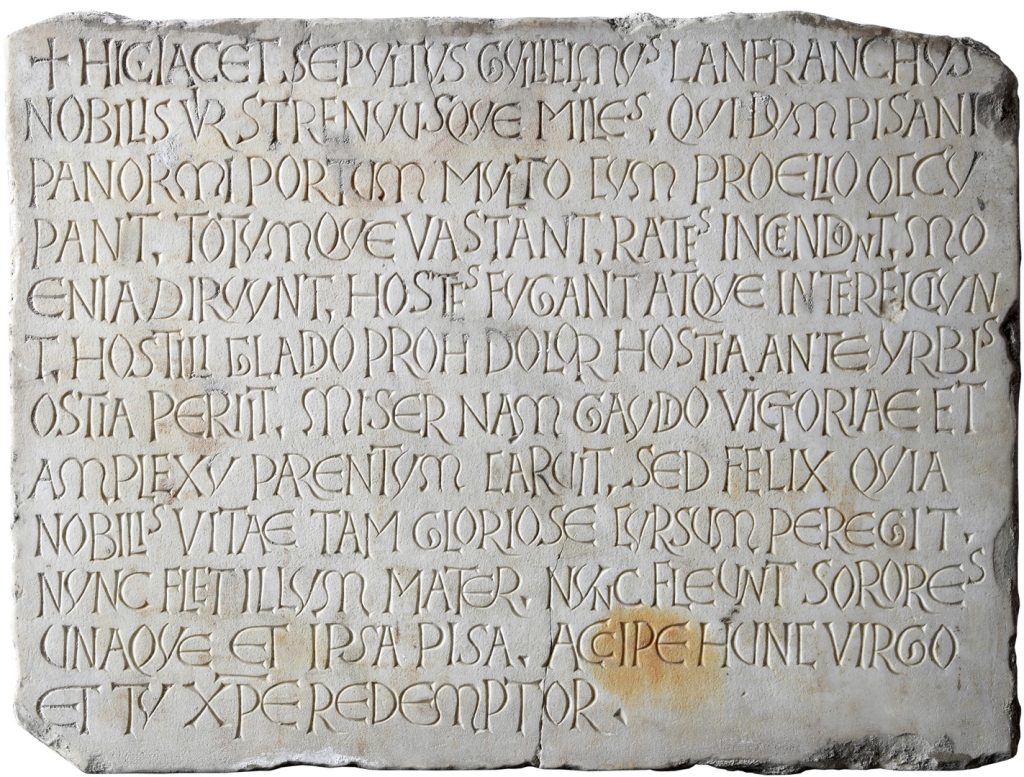 + HIC IACET SEPVLTVS GVILIELMVS LANFRANCHVS
NOBILIS VIR STRENVUSQVE MILES, QVI DVM PISANI
PANORMI PORTUM MVLTO CVM PROELIO OCCV
PANT, TOTVMQVE VASTANT, RATES INCENDVNT, MO
ENIA DIRVUNT, HOSTES FVGANT ATQVE INTERFICIVN
T, HOSTILI GLADIO PROH DOLOR HOSTIA ANTE VRBIS
OSTIA PERIIT. MISER NAM GAVDIO VICTORIAE ET
AMPLEXV PARENTVM CARVIT, SED FELIX QVIA
NOBILIS VITAE TAM GLORIOSE CVRSUM PEREGIT.
NVNC FLET ILLVM MATER, NVNC FLEUNT SORORES
UNAQVE ET IPSA PISA. ACCIPE HUNC VIRGO
ET TV XPE REDEMPTOR.